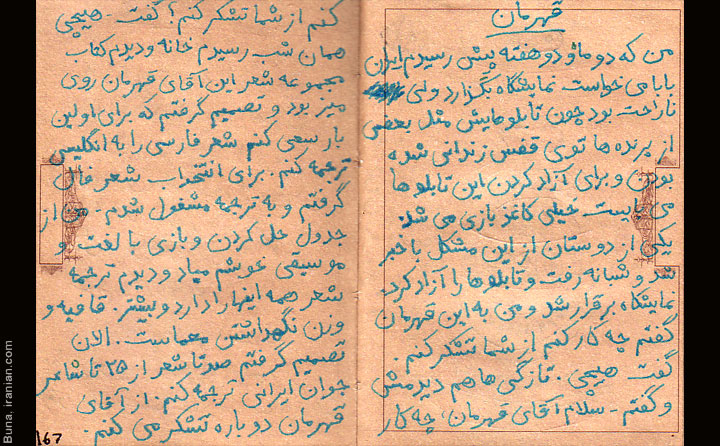 قهرمان
من که دو ماه و دو هفته پیش رسیدم ایران
بابا می خواست نمایشگاه بگذارد ولی
ناراحت بود چون تابلوهایش مثل بعضی
از پرنده ها توی قفس زندانی شده
بودن و برای آزاد کردن این تابلو ها
می بایست خیلی کاغذ بازی می شد
یکی از دوستان از این مشکل با خبر
شد و شبانه رفت و تابلوها را آزاد کرد.
نمایشگاه برقرار شد و من به این قهرمان
گفتم چه کار کنم از شما تشکر کنم.
گفت هیچی. تازگی ها هم دیدمش
و گفتم - سلام آقای قهرمان، چه کار
کنم از شما تشکر کنم؟ گفت - هیچی
همان شب رسیدم خانه و دیدم کتاب
مجموعه شعر این آقای قهرمان روی
میز بود و تصمیم گرفتم که برای اولین
بار سعی کنم شعر فارسی را به انگلیسی
ترجمه کنم. برای انتخاب شعر فال
گرفتم و به ترجمه مشغول شدم. من از
جدول حل کردن و بازی با لغت و
موسیقی خوشم میاد و دیدم ترجمه
شعر همه اینها را دارد و بیشتر. قافیه و
وزن نگهداشتن معماست. الان
تصمیم گرفتم صد تا شعر از ۲۵ تا شاعر
جوان ایرانی ترجمه کنم. از آقای
قهرمان دوباره تشکر می کنم.
167
Buna, iranian.com